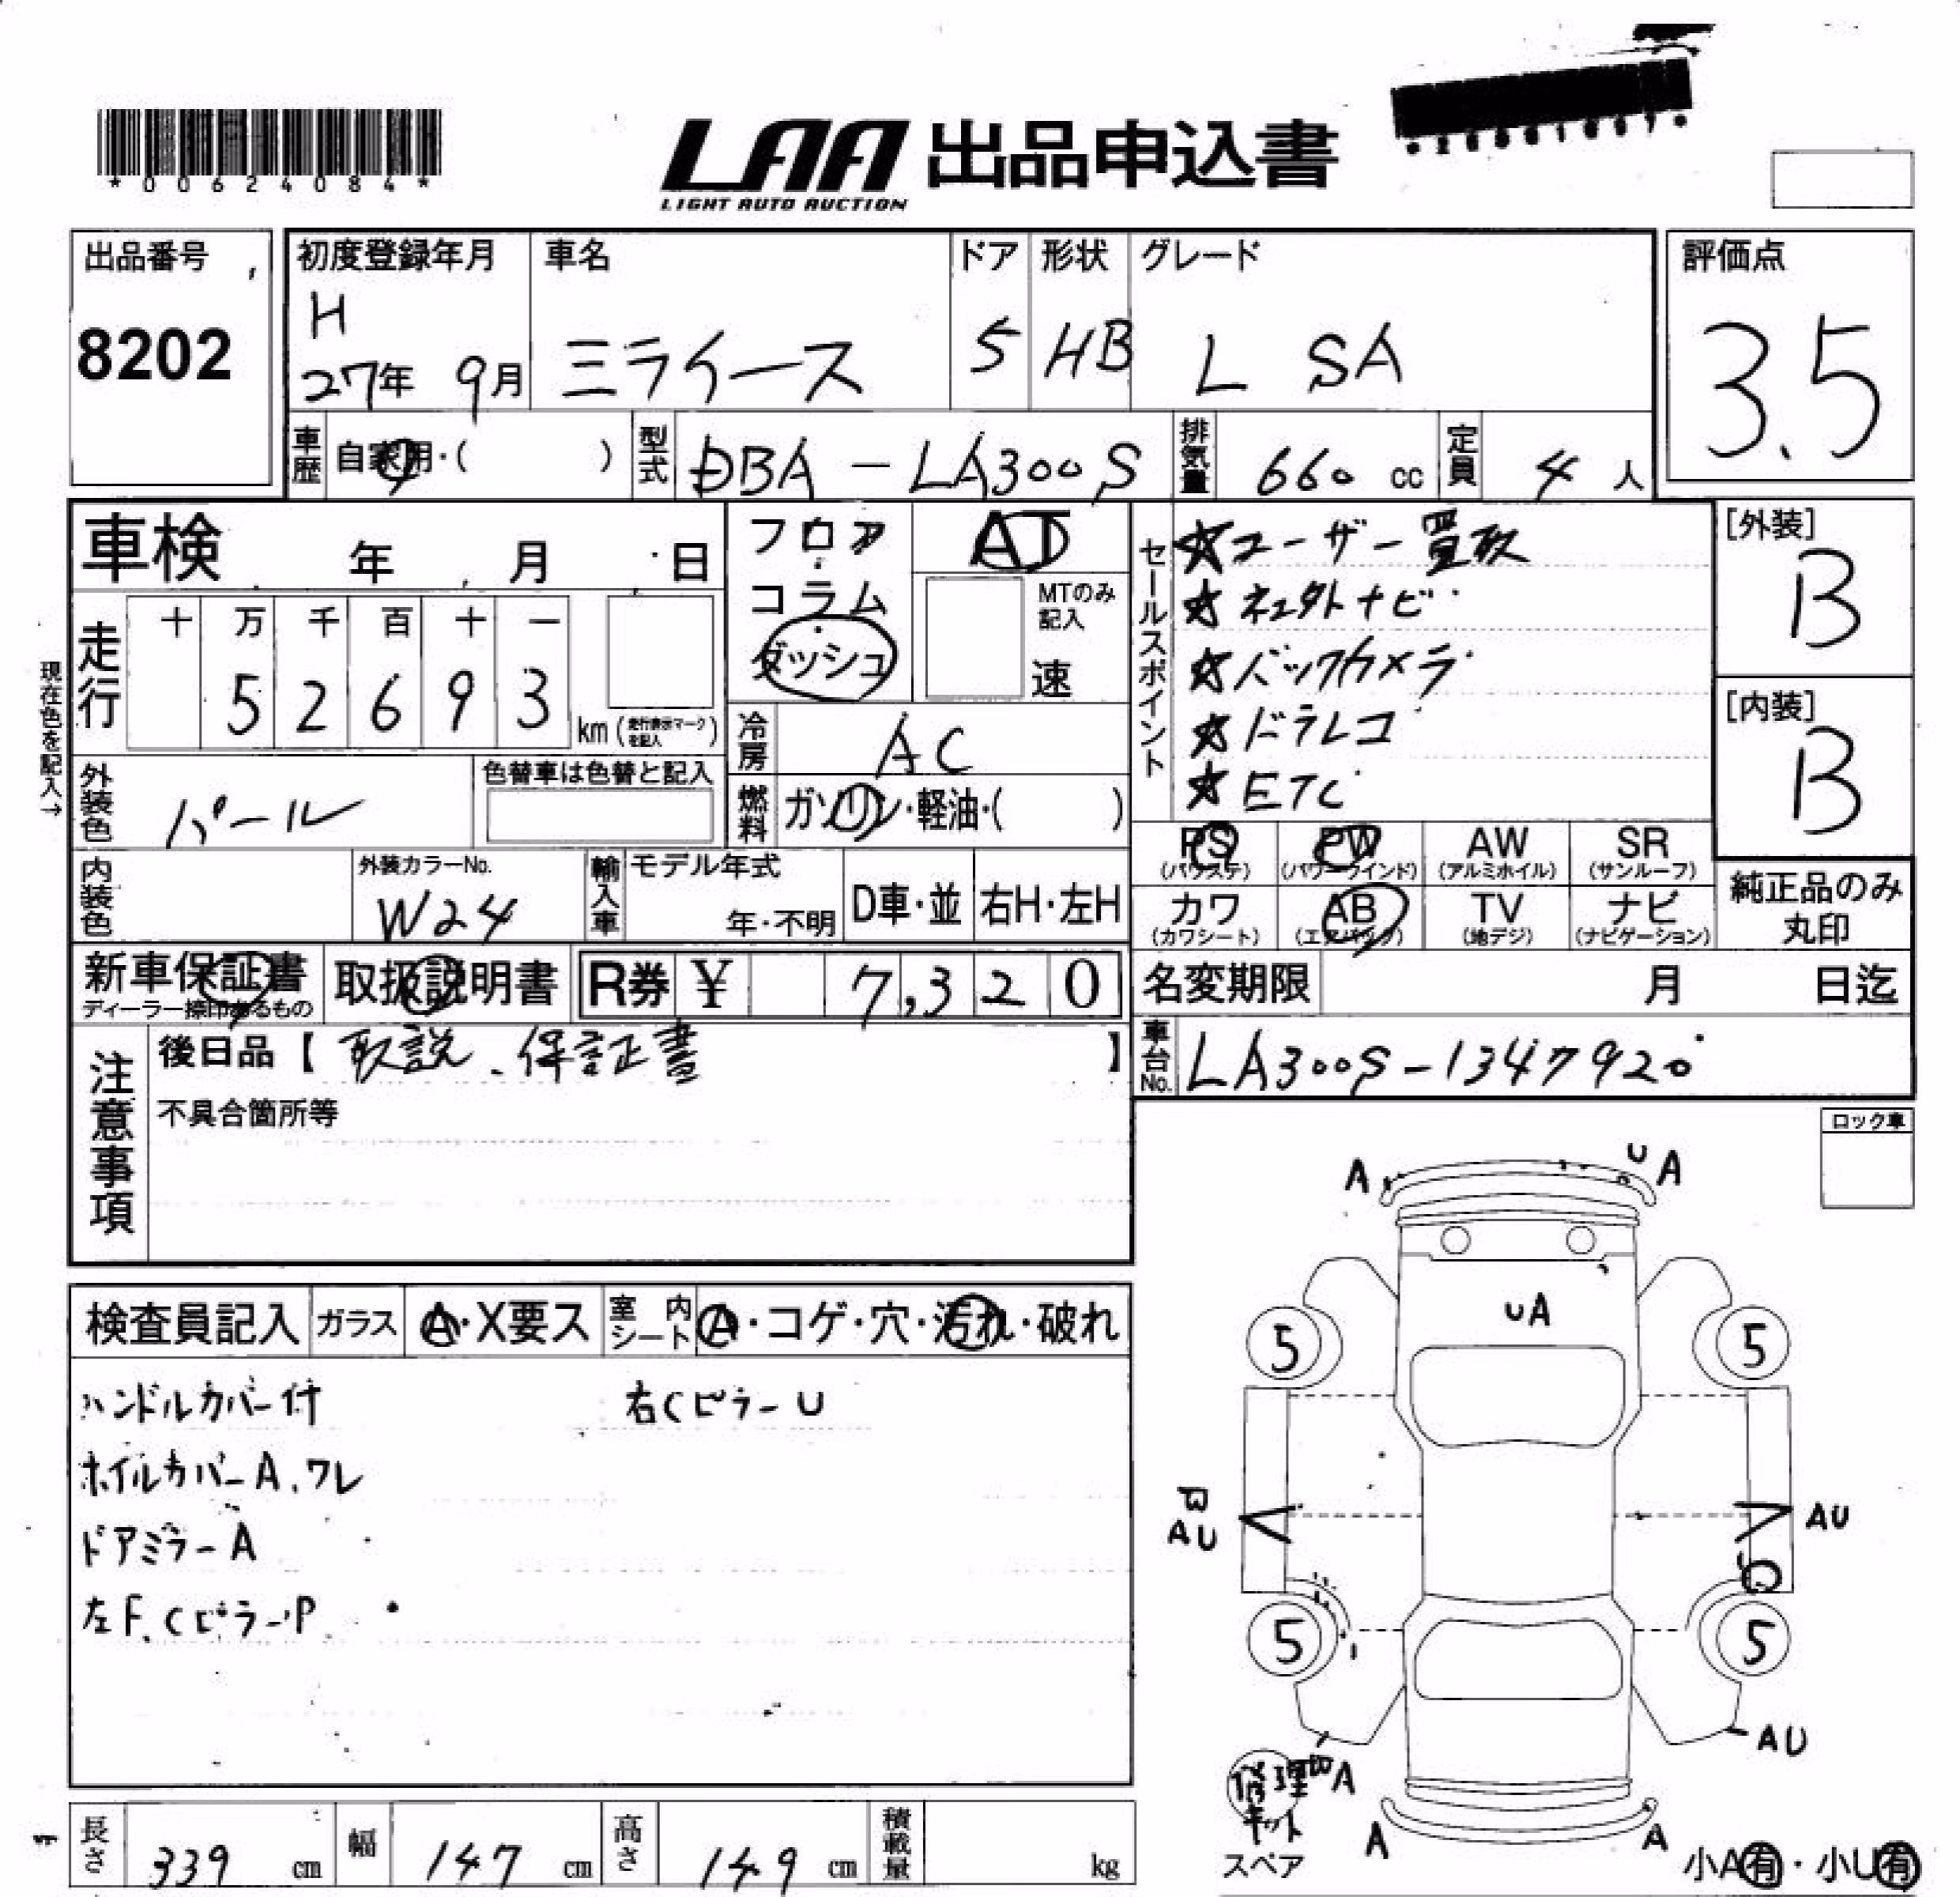 *00624084*
LAA 出品申込書
LIGHT AUTO AUCTION
出品番号
8202
初度登録年月
H
27年 9月
車名
ミライース
ドア
5
形状
HB
グレード
L SA
評価点
3.5
車歴
自家用・( )
型式
DBA-LA300S
排気量
660 cc
定員
4 人
車検 年 月 日
フロア
・
コラム
・
ダッシュ
AT
MTのみ
記入
速
セールスポイント
☆ユーザー買取
☆社外ナビ
☆バックカメラ
☆ドラレコ
☆ETC
[外装]
B
[内装]
B
現在色を記入→
走行
十 万 千 百 十 一
5 2 6 9 3
km (走行表示マークを記入)
冷房
AC
外装色
パール
色替車は色替と記入
燃料
ガソリン・軽油・( )
PS
(パワステ)
PW
(パワーウインド)
AW
(アルミホイル)
SR
(サンルーフ)
カワ
(カワシート)
AB
(エアバック)
TV
(地デジ)
ナビ
(ナビゲーション)
純正品のみ
丸印
内装色
外装カラーNo.
W24
輸入車
モデル年式
年・不明
D車・並
右H・左H
新車保証書
ディーラー捺印あるもの
取扱説明書
R券 ¥ 7,320
名変期限 月 日迄
車台No.
LA300S-1347920
注意事項
後日品【 取説、保証書 】
不具合箇所等
ロック車
検査員記入
ガラス
A・X要ス
室内シート
A・コゲ・穴・汚れ・破れ
ハンドルカバー付
右Cピラーu
ホイルカバーA、ワレ
ドアミラーA
左F、CピラーP
A
U
A
UA
5
5
B
AU
AU
5
5
AU
A
修理
キット
スペア
A
A
小A有・小U有
長さ
339 cm
幅
147 cm
高さ
149 cm
積載量
kg